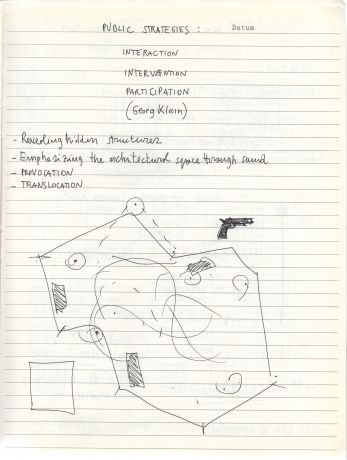 PUBLIC STRATEGIES : Datum
INTERACTION
INTERVENTION
PARTICIPATION
(Georg Klein)
- Revealing hidden structures
- Emphasizing the architectural space through sound
- PROVOCATION
- TRANSLOCATION